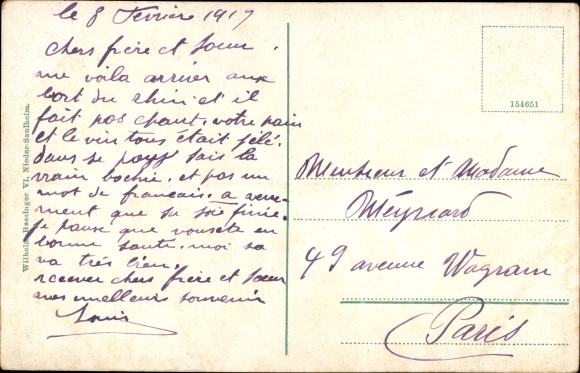 le 8 Fevrière 1919
chers frère et soeur,
me voila arriver aux
bort du Rhin et il
fait pas chaut. votre pain
et le vin tous était gélé.
dans se pays sais la
vrain bochie. et pas un
mot de francais. a
ment que sa soie finie.
je panse que vous ete en
bonne santé. moi sa
va très bien.
recever chers frère et soeur
mes meilleurs souvenir
Louis
Wilhelm Bassinger VI, Nieder-Saulheim.
154651
Monsieur et Madame
49 avenue Wagram
Paris